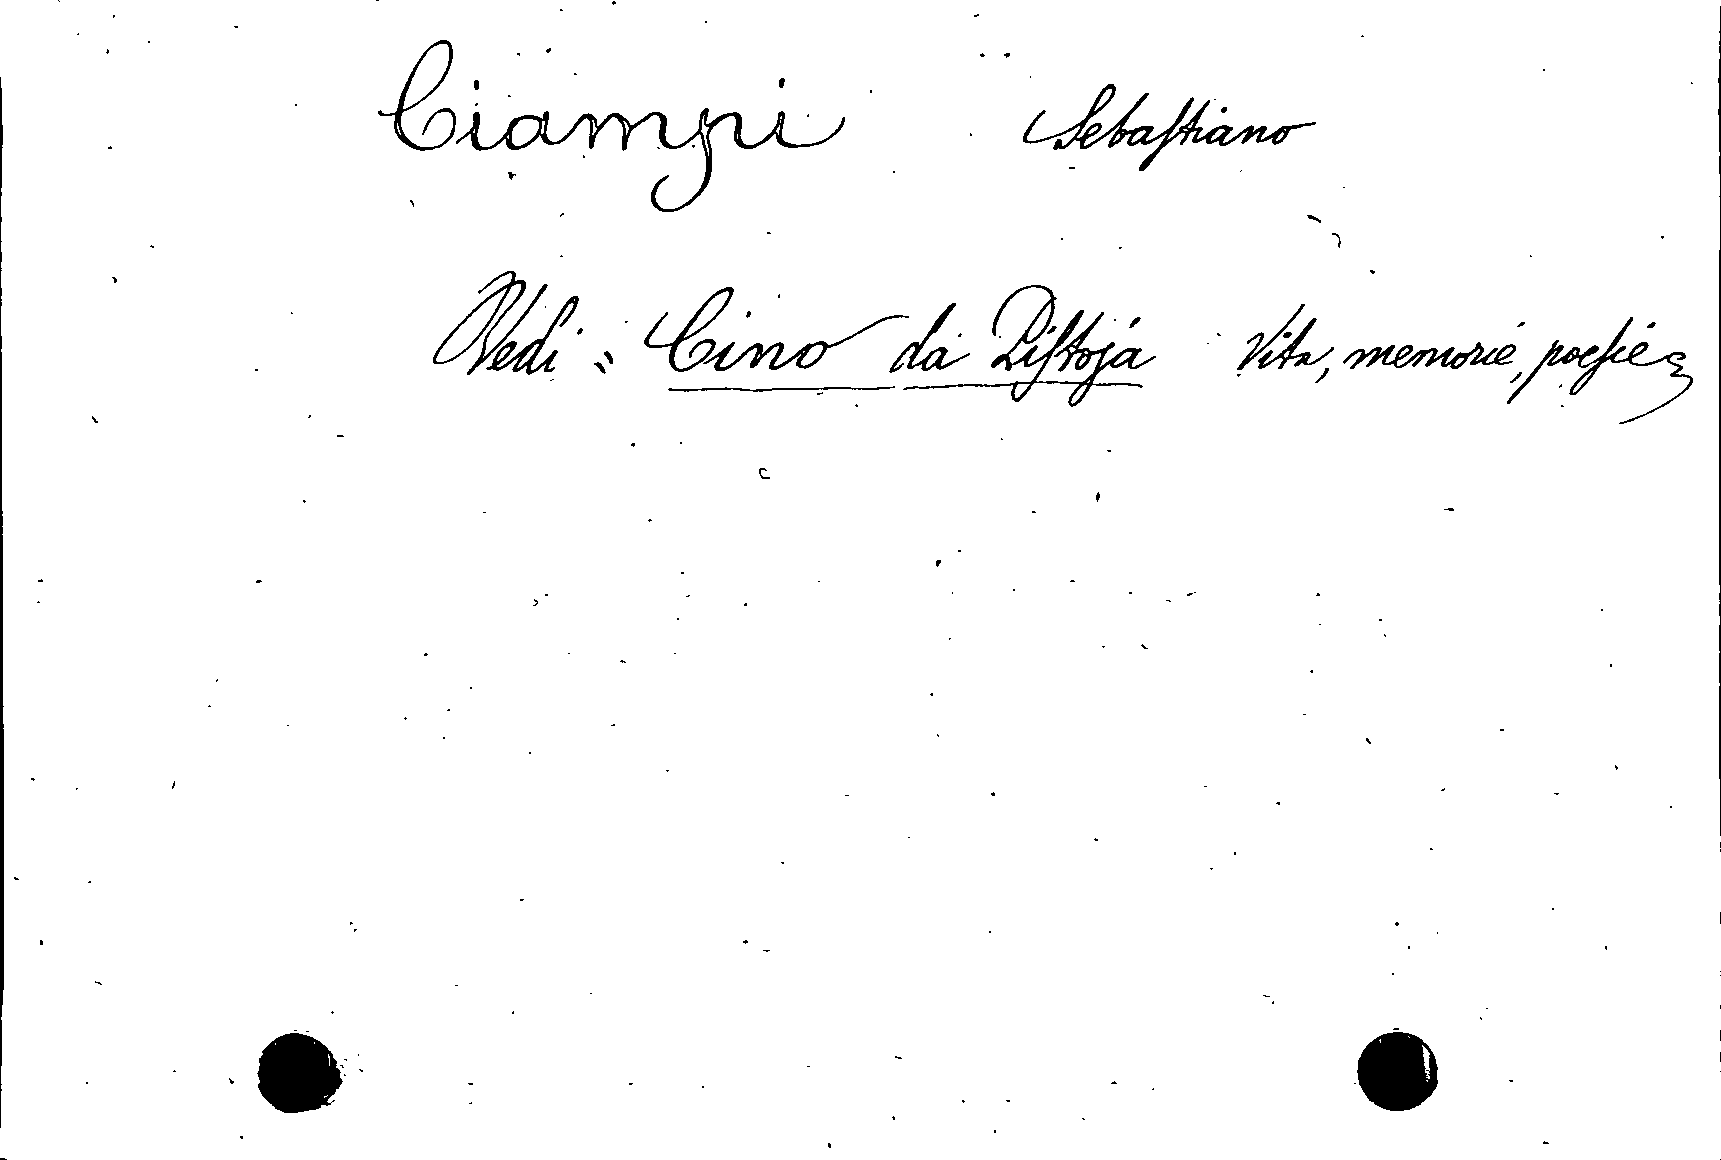 Ciampi Sebastiano
Vedi = Cino da Pistoja Vita, memorie, poesie